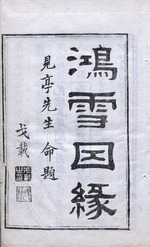 鴻雪因緣
見亭先生命題
戈載